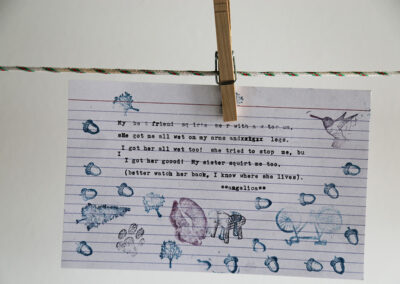 My be t friend sq irts me r with a w ter un,
sHe got me all wet on my arms andxxXgzx legs.
I got her all wet too! she tried to stop me, bu
I
I got her goood! My sister squirt me too.
(better watch her back, I know where she lives).
**angelica**